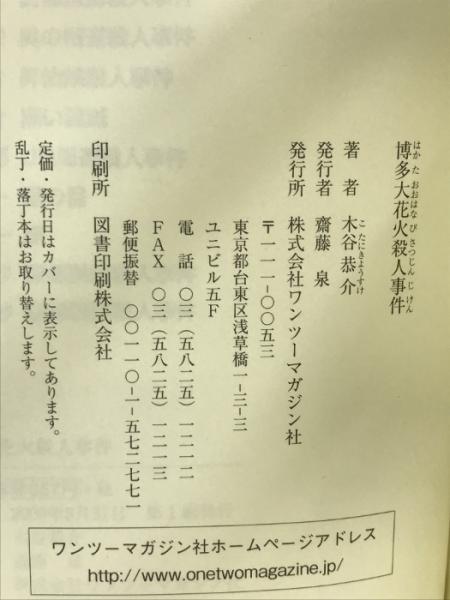 博多大花火殺人事件
はかたおおはなびさつじんじけん
著者 木谷恭介
こたにきょうすけ
発行者 齋藤 泉
発行所 株式会社ワンツーマガジン社
〒一一一-〇〇五三
東京都台東区浅草橋一-三-三
ユニビル五F
電話 〇三(五八二五)一二一二
FAX 〇三(五八二五)一二一三
郵便振替 〇〇一一〇-一-五七二七七一
印刷所 図書印刷株式会社
定価・発行日はカバーに表示してあります。
乱丁・落丁本はお取り替えします。
ワンツーマガジン社ホームページアドレス
http://www.onetwomagazine.jp/